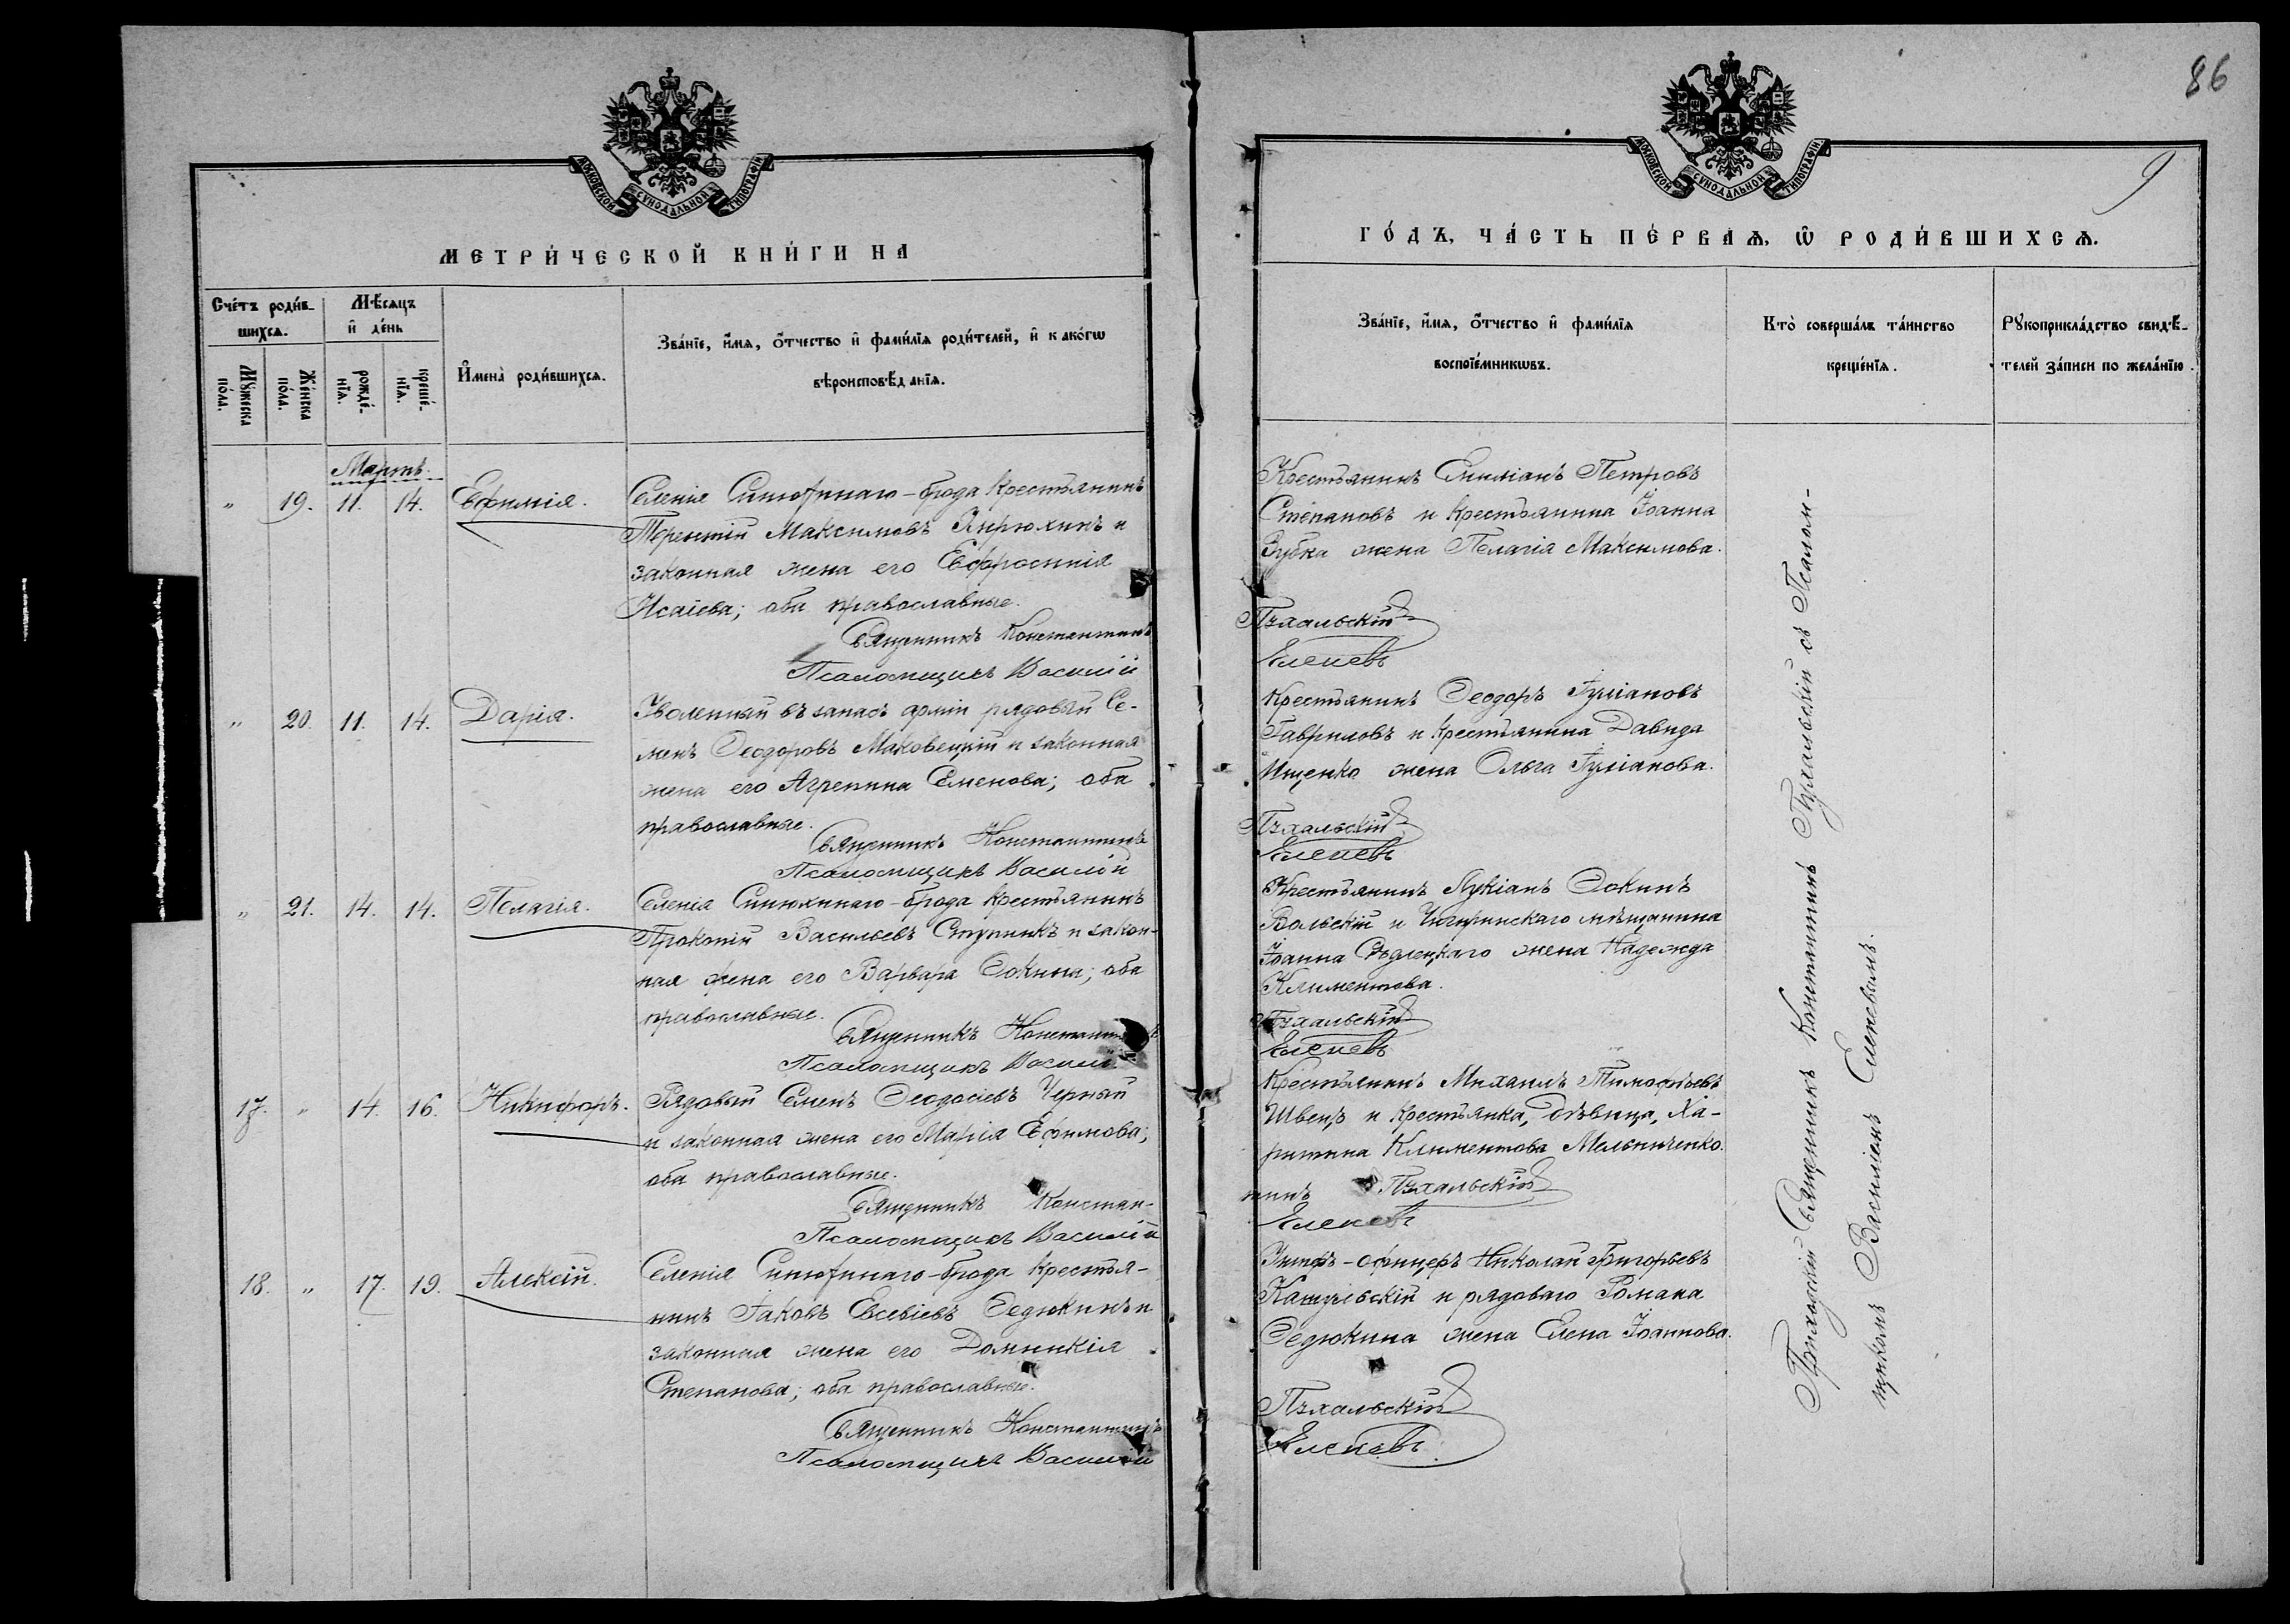 86
9
МОСКОВСКОЙ СѴНОДАЛЬНОЙ ТИПОГРАФІИ
МОСКОВСКОЙ СѴНОДАЛЬНОЙ ТИПОГРАФІИ
МЕТРИ́ЧЕСКОЙ КНИ́ГИ НА
ГО́ДЪ, ЧА́СТЬ ПЕ́РВАѦ, Ѽ РОДИ́ВШИХСѦ.
Сче́тъ роди́в-
шихсѧ.
Мꙋ́жеска по́ла.
Же́нска по́ла.
Мѣ́сѧцъ
и҆ де́нь
рожде́-
нїѧ.
креще́-
нїѧ.
И҆мена̀ роди́вшихсѧ.
Зва́нїе, и҆́мѧ, ѻ҆́тчество и҆ фами́лїѧ роди́телей, и҆ како́гѡ
вѣроисповѣ́данїѧ.
Зва́нїе, и҆́мѧ, ѻ҆́тчество и҆ фами́лїѧ
воспрїе́мникѡвъ.
Кто̀ соверша́лъ та́инство
креще́нїѧ.
Рꙋкоприкла́дство свидѣ́-
телей за́писи по жела́нїю.
Мартъ.
" 19. 11. 14. Евфимія.
Селенія Синюхинаго-брода крестьянинъ
Терентій Максимовъ Кирюхинъ и
законная жена его Евфросинія
Исаіева; оба православные.
Священникъ Константинъ
Псаломщикъ Василій
Крестьянинъ Емиліанъ Петровъ
Степановъ и крестьянина Іоанна
Зубка жена Пелагія Максимова.
Пухальскій
Еленевъ
" 20. 11. 14. Дарія.
Уволенный въ запасъ арміи рядовый Се-
менъ Ѳеодоровъ Маковецкій и законная
жена его Агрепина Семенова; оба
православные.
Священникъ Константинъ
Псаломщикъ Василій
Крестьянинъ Ѳеодоръ Іуліановъ
Гавриловъ и крестьянина Давида
Ищенко жена Ольга Іуліанова.
Пухальскій
Еленевъ
" 21. 14. 14. Пелагія.
Селенія Синюхинаго-брода крестьянинъ
Прокопій Васильевъ Ступникъ и закон-
ная жена его Варвара Ѳокина; оба
православные.
Священникъ Константинъ
Псаломщикъ Василій
Крестьянинъ Лукіанъ Ѳокинъ
Вольскій и Чигиринскаго мѣщанина
Іоанна Сѣдлецкаго жена Надежда
Климентова.
Пухальскій
Еленевъ
17. " 14. 16. Никифоръ.
Рядовый Семенъ Ѳеодосіевъ Черный
и законная жена его Марія Ефимова;
оба православные.
Священникъ Констан-
Псаломщикъ Василій
Крестьянинъ Михаилъ Тимофѣевъ
Швецъ и крестьянка, дѣвица, Ха-
ритина Климентова Мельниченко.
тинъ Пухальскій
Еленевъ
18. " 17. 19. Алексій.
Селенія Синюхинаго-брода крестья-
нинъ Іаковъ Евсевіевъ Седюкинъ и
законная жена его Домникія
Степанова; оба православные.
Священникъ Константинъ
Псаломщикъ Василій
Унтеръ-офицеръ Николай Григорьевъ
и рядоваго Романа
Седюкина жена Елена Іоаннова.
Пухальскій
Еленевъ
Приходскій Священникъ Константинъ Пухальскій съ Псалом-
щикомъ Василіемъ Еленевымъ.